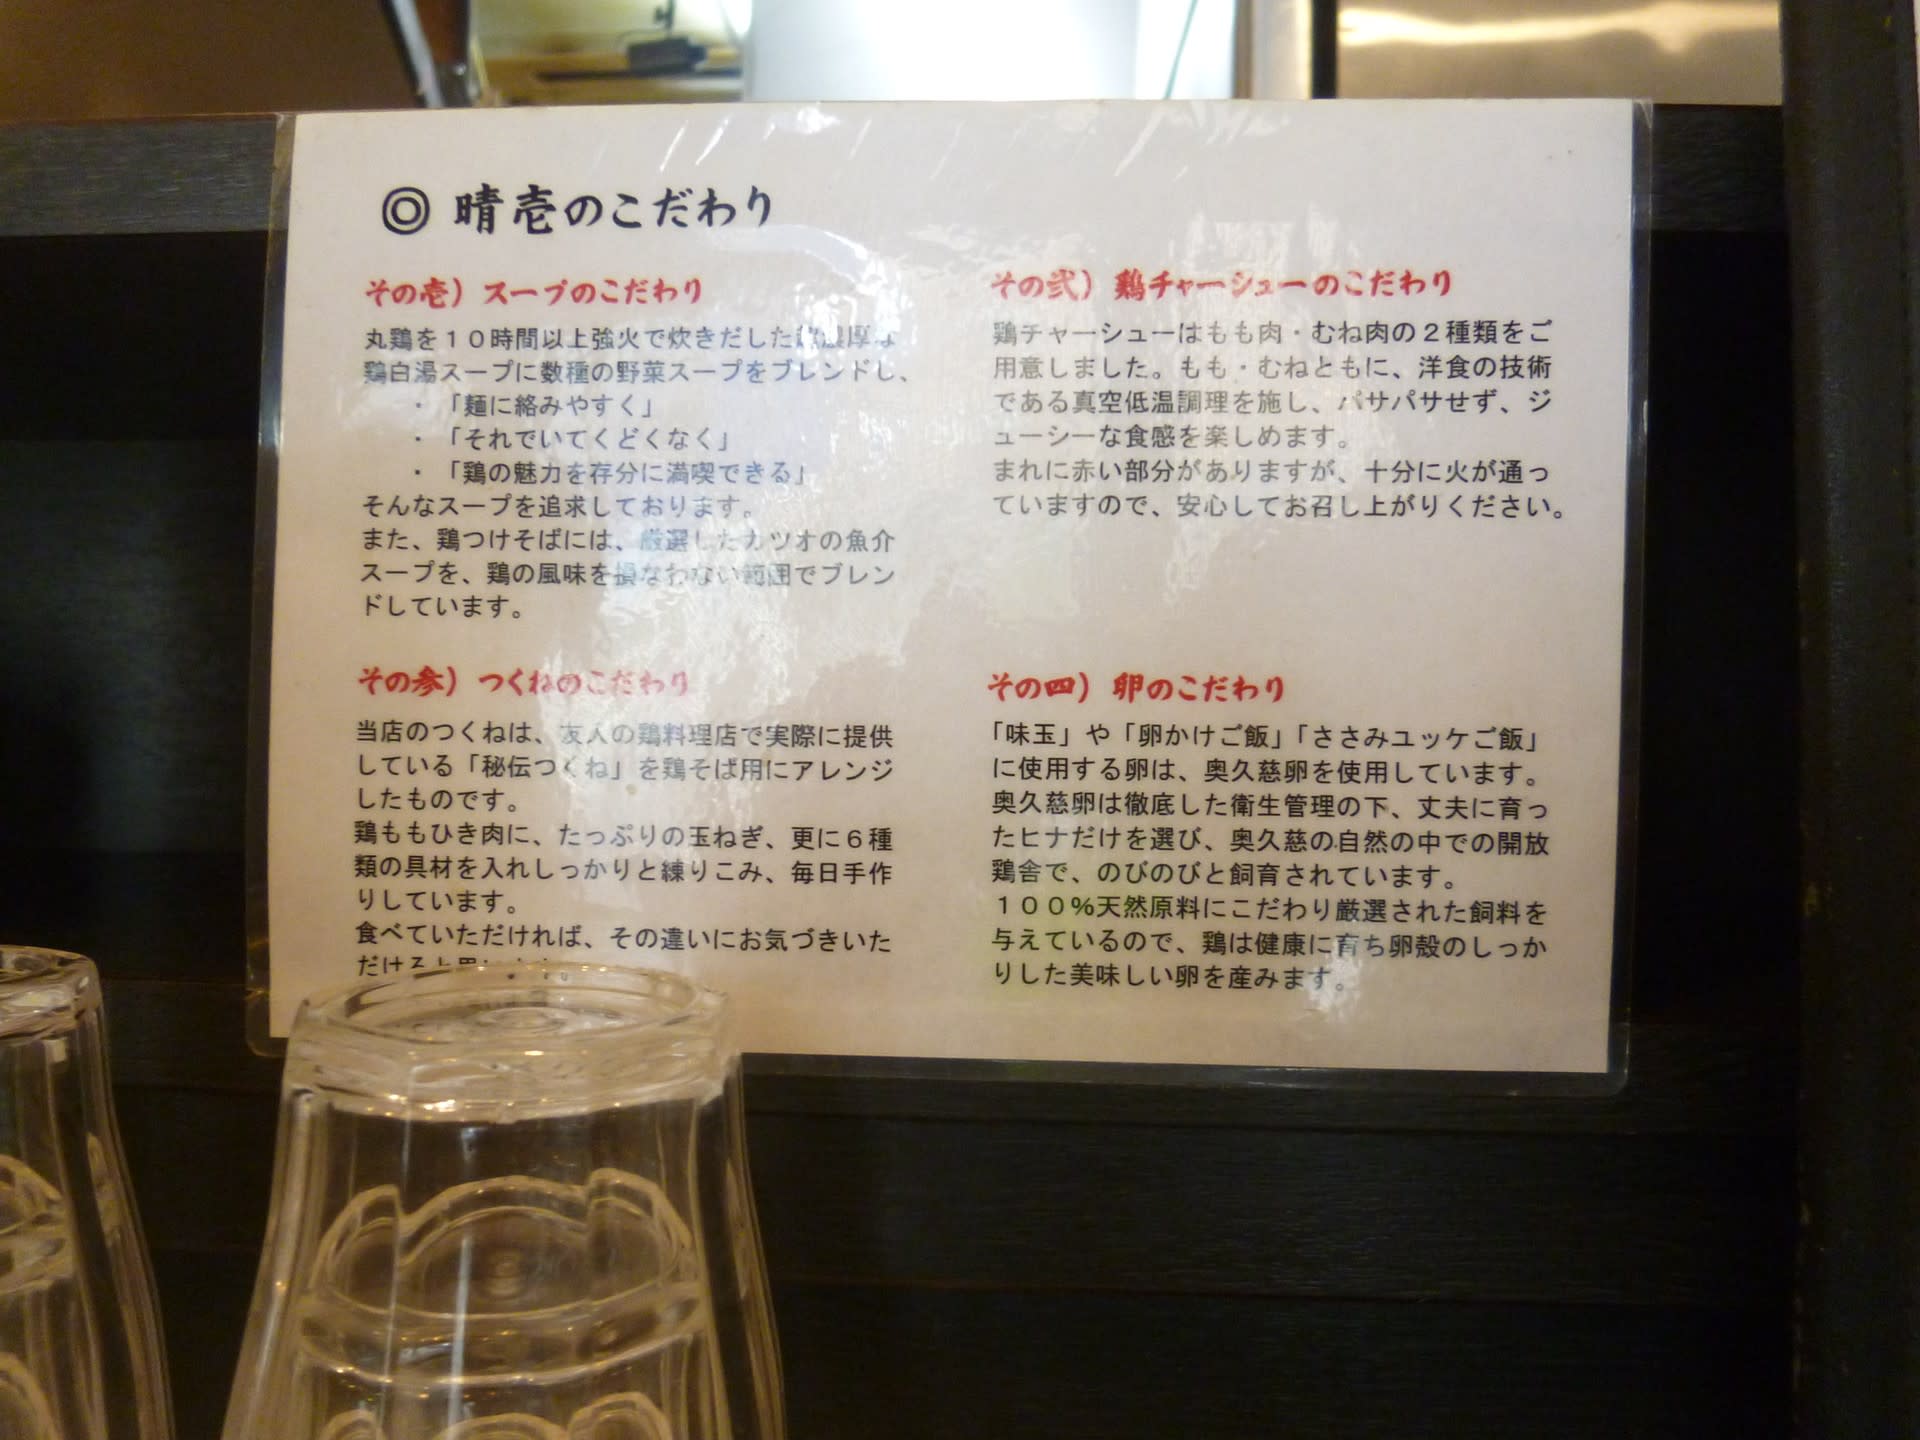 ◎ 晴壱のこだわり
その壱）スープのこだわり
丸鶏を１０時間以上強火で炊きだした超濃厚な
鶏白湯スープに数種の野菜スープをブレンドし、
・「麺に絡みやすく」
・「それでいてくどくなく」
・「鶏の魅力を存分に満喫できる」
そんなスープを追求しております。
また、鶏つけそばには、厳選したカツオの魚介
スープを、鶏の風味を損なわない範囲でブレン
ドしています。
その弐）鶏チャーシューのこだわり
鶏チャーシューはもも肉・むね肉の２種類をご
用意しました。もも・むねともに、洋食の技術
である真空低温調理を施し、パサパサせず、ジ
ューシーな食感を楽しめます。
まれに赤い部分がありますが、十分に火が通っ
ていますので、安心してお召し上がりください。
その参）つくねのこだわり
当店のつくねは、友人の鶏料理店で実際に提供
している「秘伝つくね」を鶏そば用にアレンジ
したものです。
鶏ももひき肉に、たっぷりの玉ねぎ、更に６種
類の具材を入れしっかりと練りこみ、毎日手作
りしています。
食べていただければ、その違いにお気づきいた
だけると思います。
その四）卵のこだわり
「味玉」や「卵かけご飯」「ささみユッケご飯」
に使用する卵は、奥久慈卵を使用しています。
奥久慈卵は徹底した衛生管理の下、丈夫に育っ
たヒナだけを選び、奥久慈の自然の中での開放
鶏舎で、のびのびと飼育されています。
１００％天然原料にこだわり厳選された飼料を
与えているので、鶏は健康に育ち卵殻のしっか
りした美味しい卵を産みます。